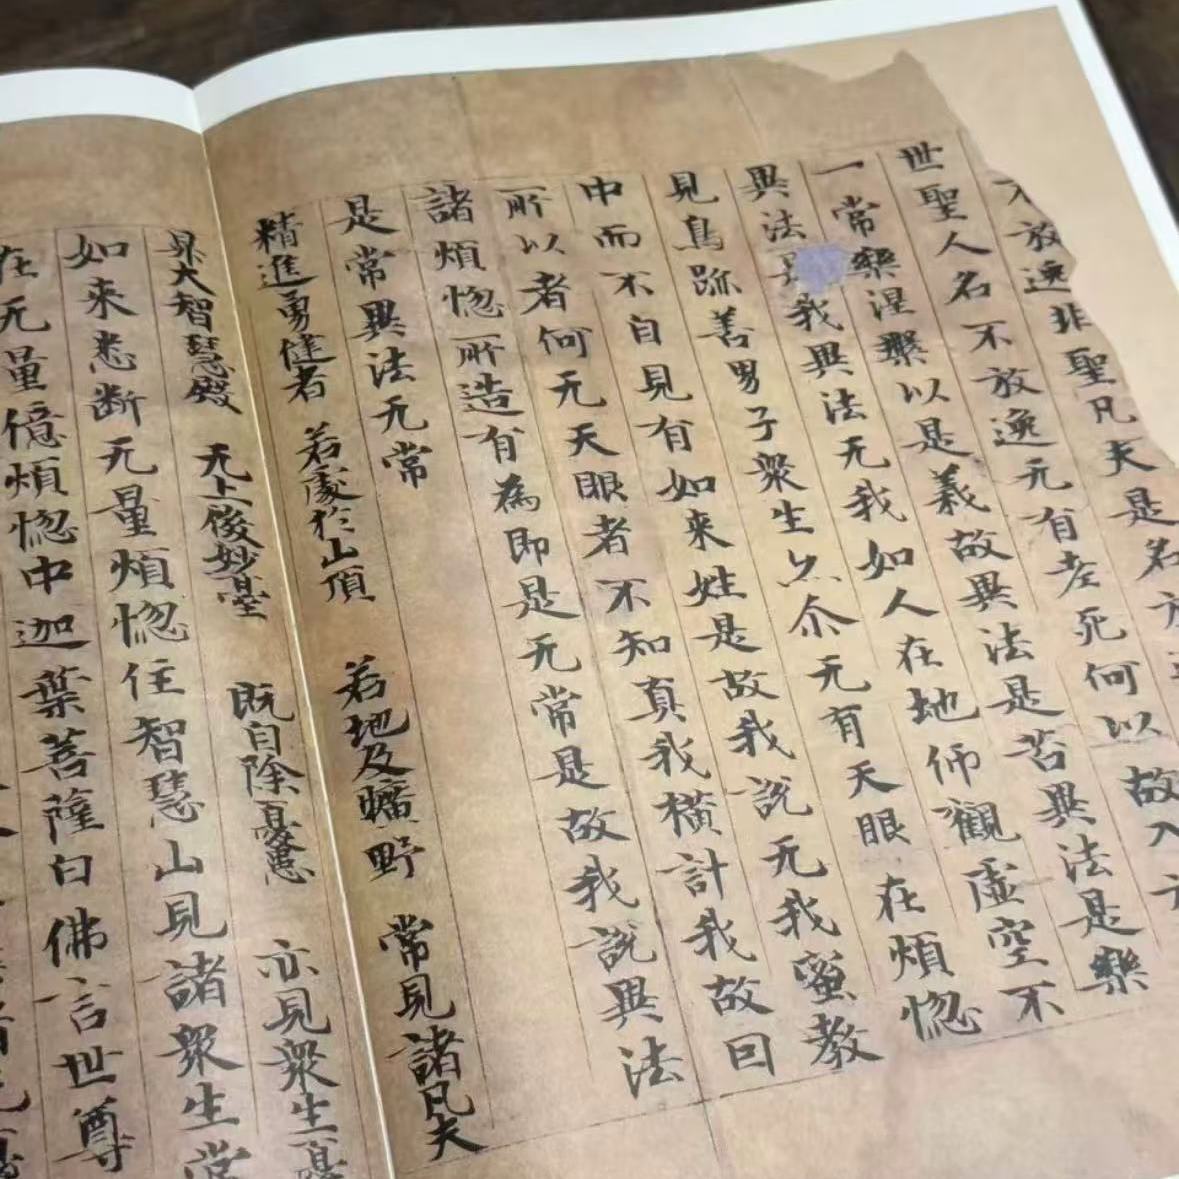 不放逸非聖凡夫是名
世聖人名不放逸无有老死何以故入
一常樂涅槃以是義故異法是苦異法是樂
異法是我異法无我如人在地仰觀虛空不
見鳥跡善男子衆生亦尒无有天眼在煩惱
中而不自見有如来姓是故我說无我蜜教
所以者何无天眼者不知真我橫計我故曰
諸煩惱所造有為即是无常是故我說異法
是常異法无常
精進勇健者 若處於山頂 若地及曠野 常見諸凡夫
昇大智慧殿 无上微妙臺 既自除憂患 亦見衆生憂
如来悉断无量煩惱住智慧山見諸衆生常
在无量億煩惱中迦葉菩薩白佛言世尊